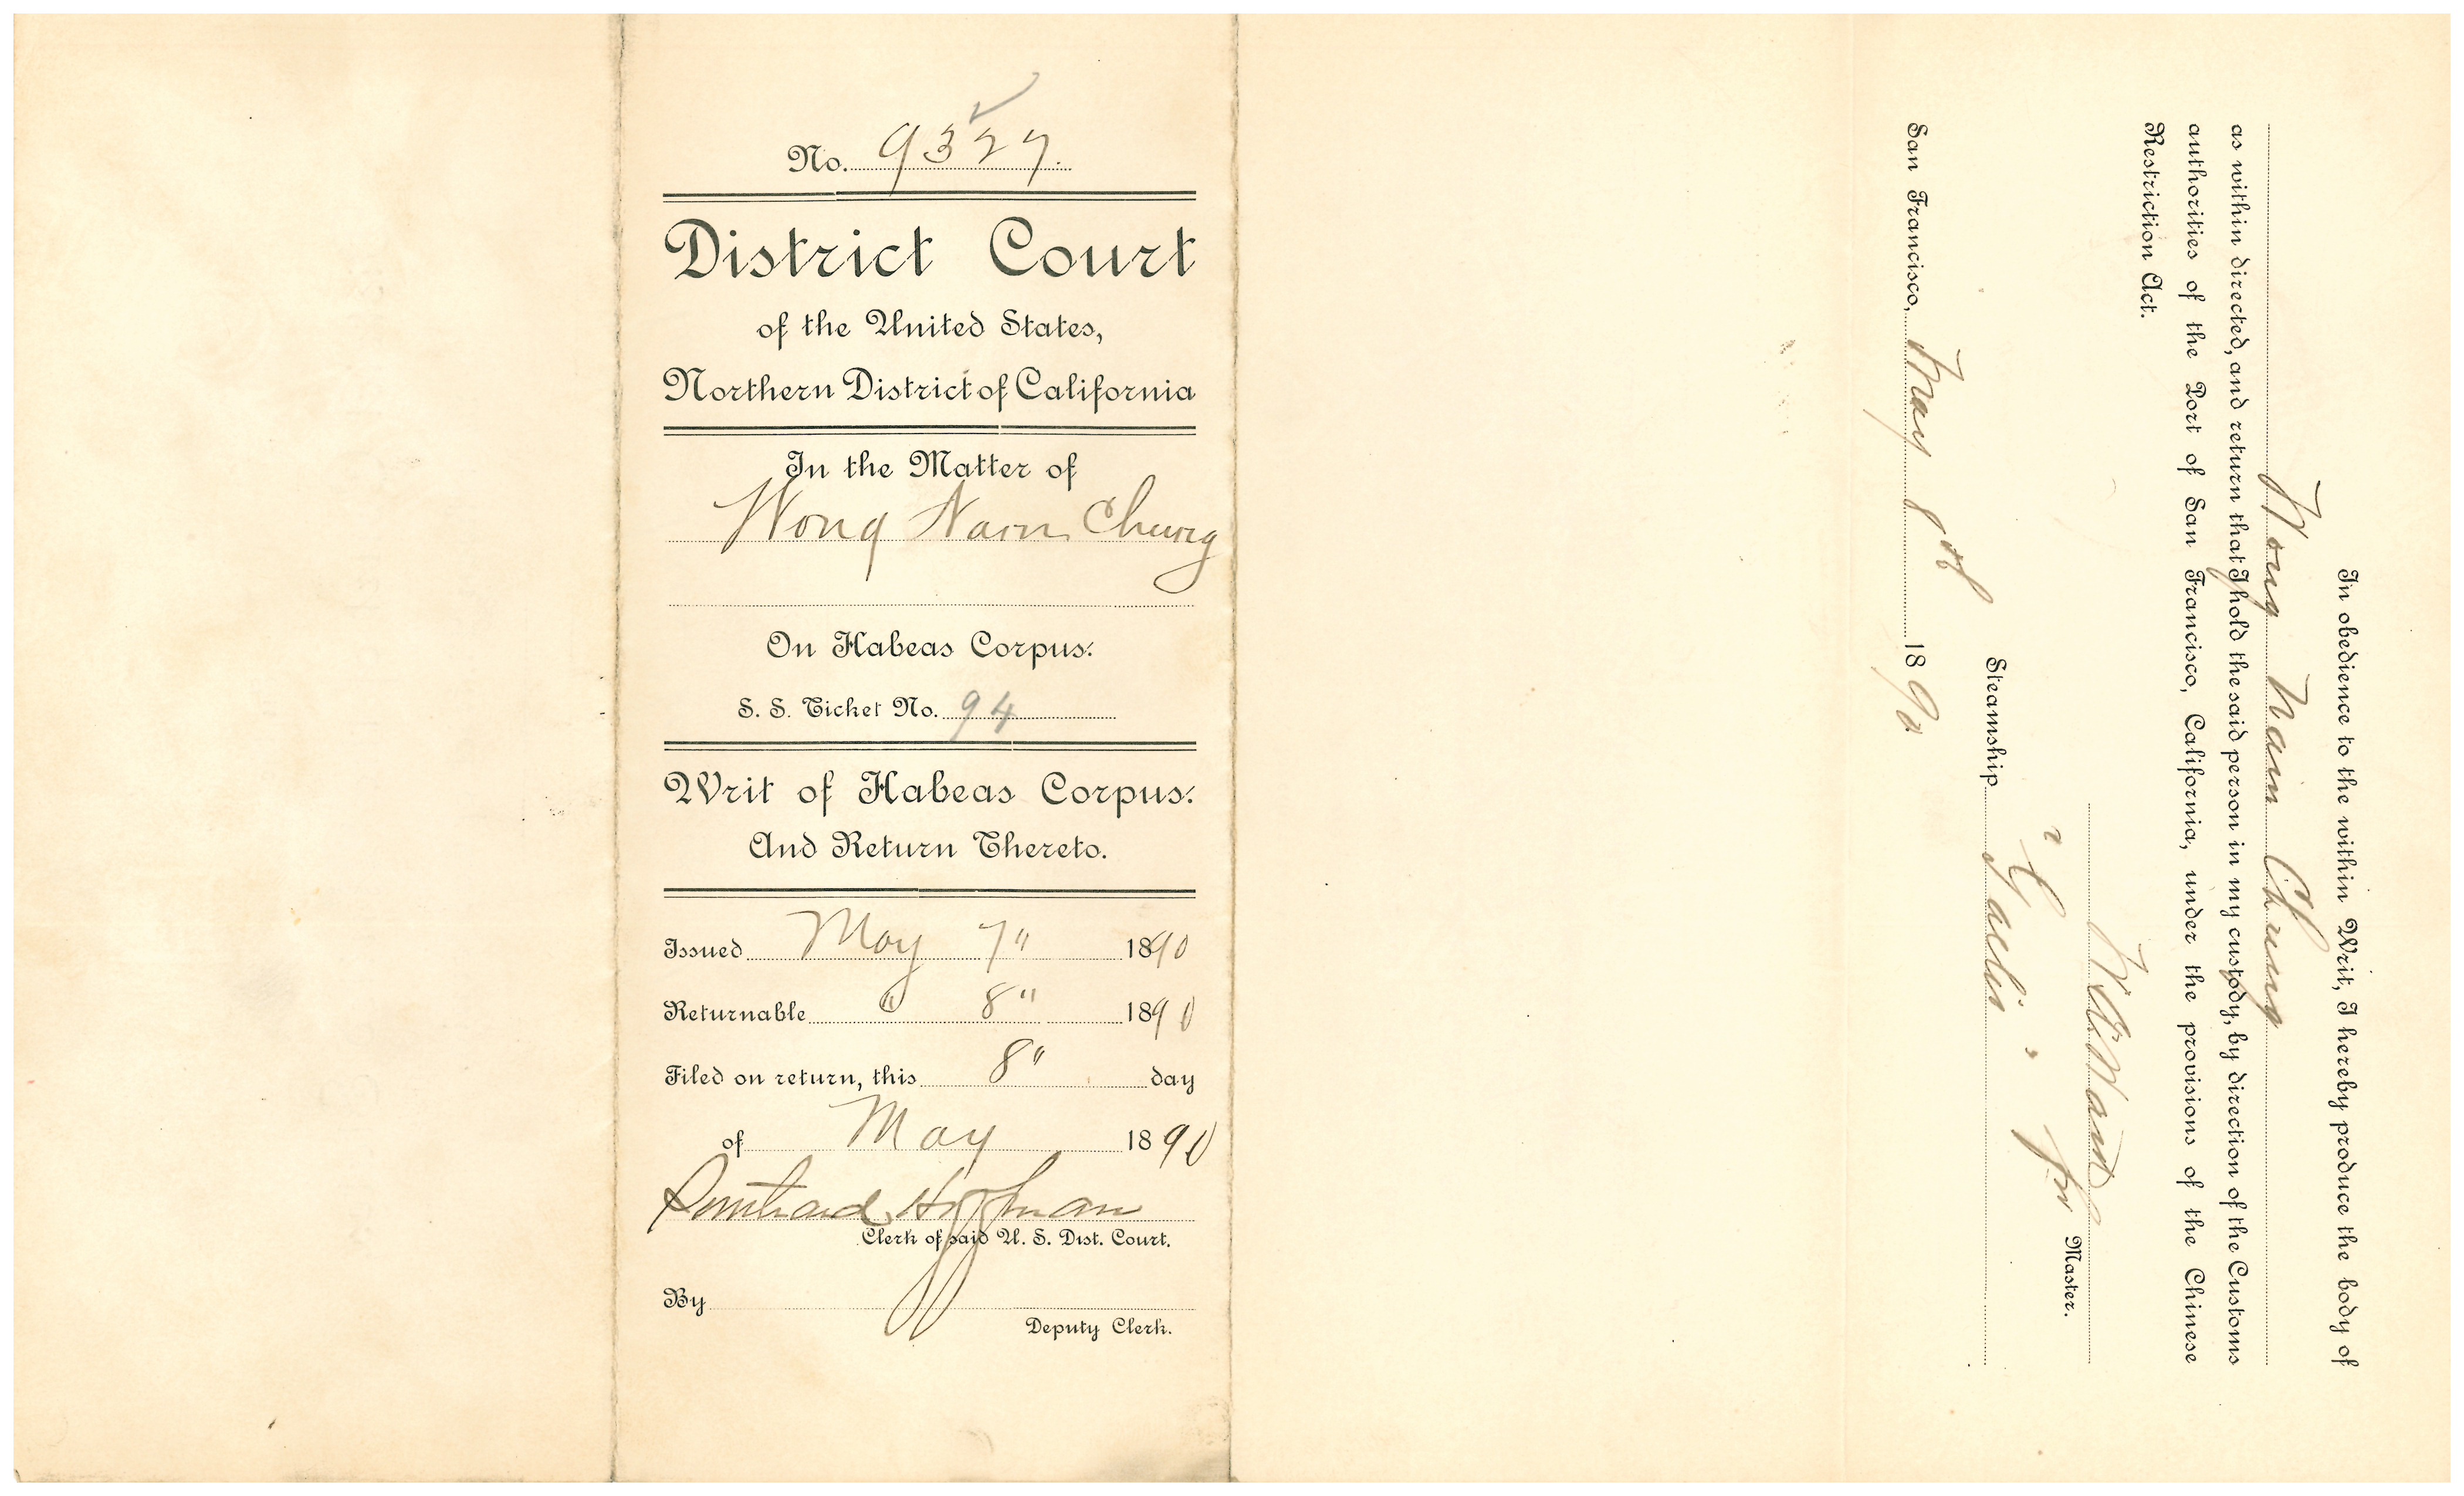 No. 9327.
District Court
of the United States,
Northern District of California
In the Matter of
Wong Nain Chung
On Habeas Corpus.
S. S. Ticket No. 94
Writ of Habeas Corpus.
And Return Thereto.
Issued May 7" 1890
Returnable " 8" 1890
Filed on return, this 8" day
of May 1890
Southard Hoffman
Clerk of said U. S. Dist. Court.
By
Deputy Clerk.
In obedience to the within Writ, I hereby produce the body of
Wong Nain Chung
as within directed, and return that I hold the said person in my custody, by direction of the Customs
authorities of the Port of San Francisco, California, under the provisions of the Chinese
Restriction Act.
for Master.
Steamship "Gaelic"
San Francisco, May 8th 1890